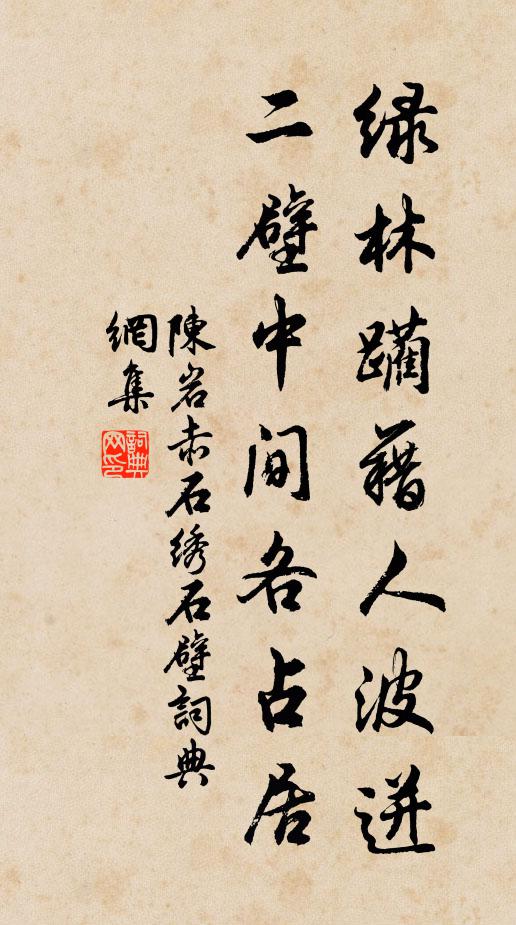 绿林躪藉人波迸
二壁中间各占居
陳岩赤石绣石壁詞典
網集
詞典网印